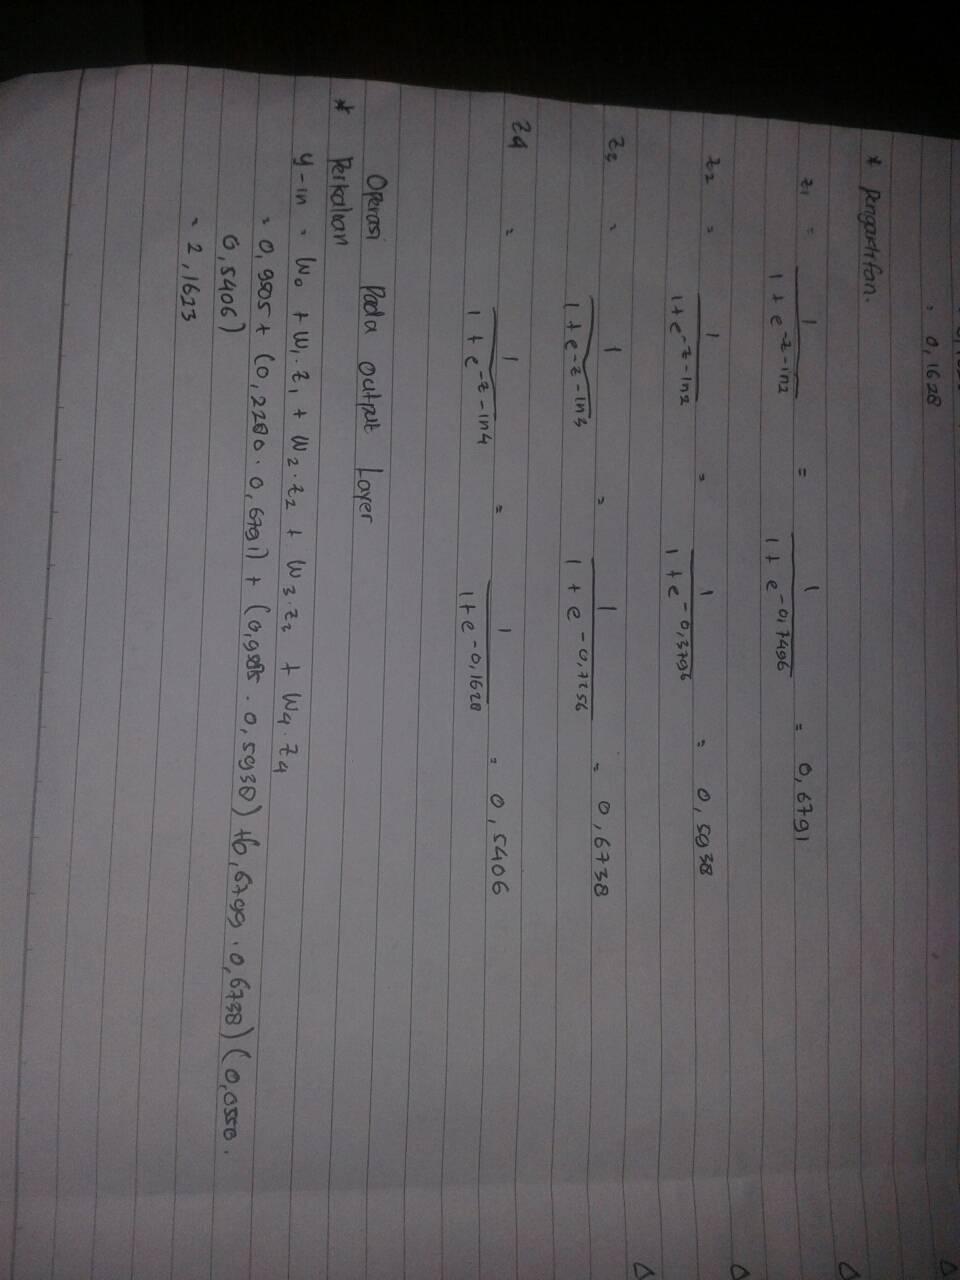 = 0,1628
* Pengaktifan.
z1 = 1 / 1 + e^-z-in2 = 1 / 1 + e^-0,7496 = 0,6791
z2 = 1 / 1 + e^-z-in2 = 1 / 1 + e^-0,3796 = 0,5938
z3 = 1 / 1 + e^-z-in3 = 1 / 1 + e^-0,7256 = 0,6738
z4 = 1 / 1 + e^-z-in4 = 1 / 1 + e^-0,1628 = 0,5406
Operasi Pada output Layer
* Perkalian
y-in = W0 + W1.z1 + W2.z2 + W3.z2 + W4.z4
= 0,9505 + (0,2280 . 0,6791) + ( . 0,5938) + (0,6799 . 0,6738) (0,0550.
0,5406)
= 2,1623